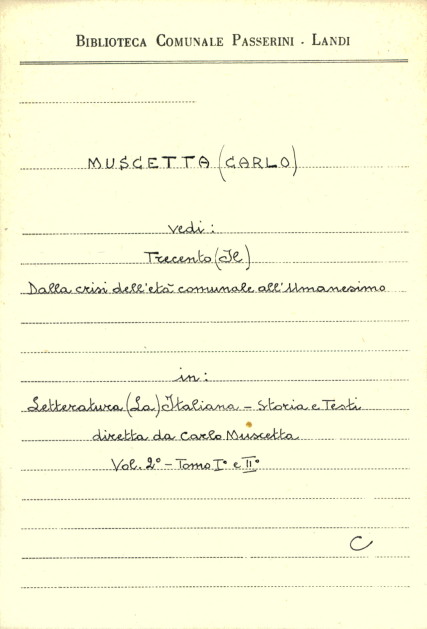 BIBLIOTECA COMUNALE PASSERINI - LANDI
MUSCETTA (CARLO)
vedi:
Trecento (Il)
Dalla crisi dell'età comunale all'Umanesimo
in:
Letteratura (La) Italiana - Storia e Testi
diretta da Carlo Muscetta
Vol. 2° - Tomo I° e II°
C